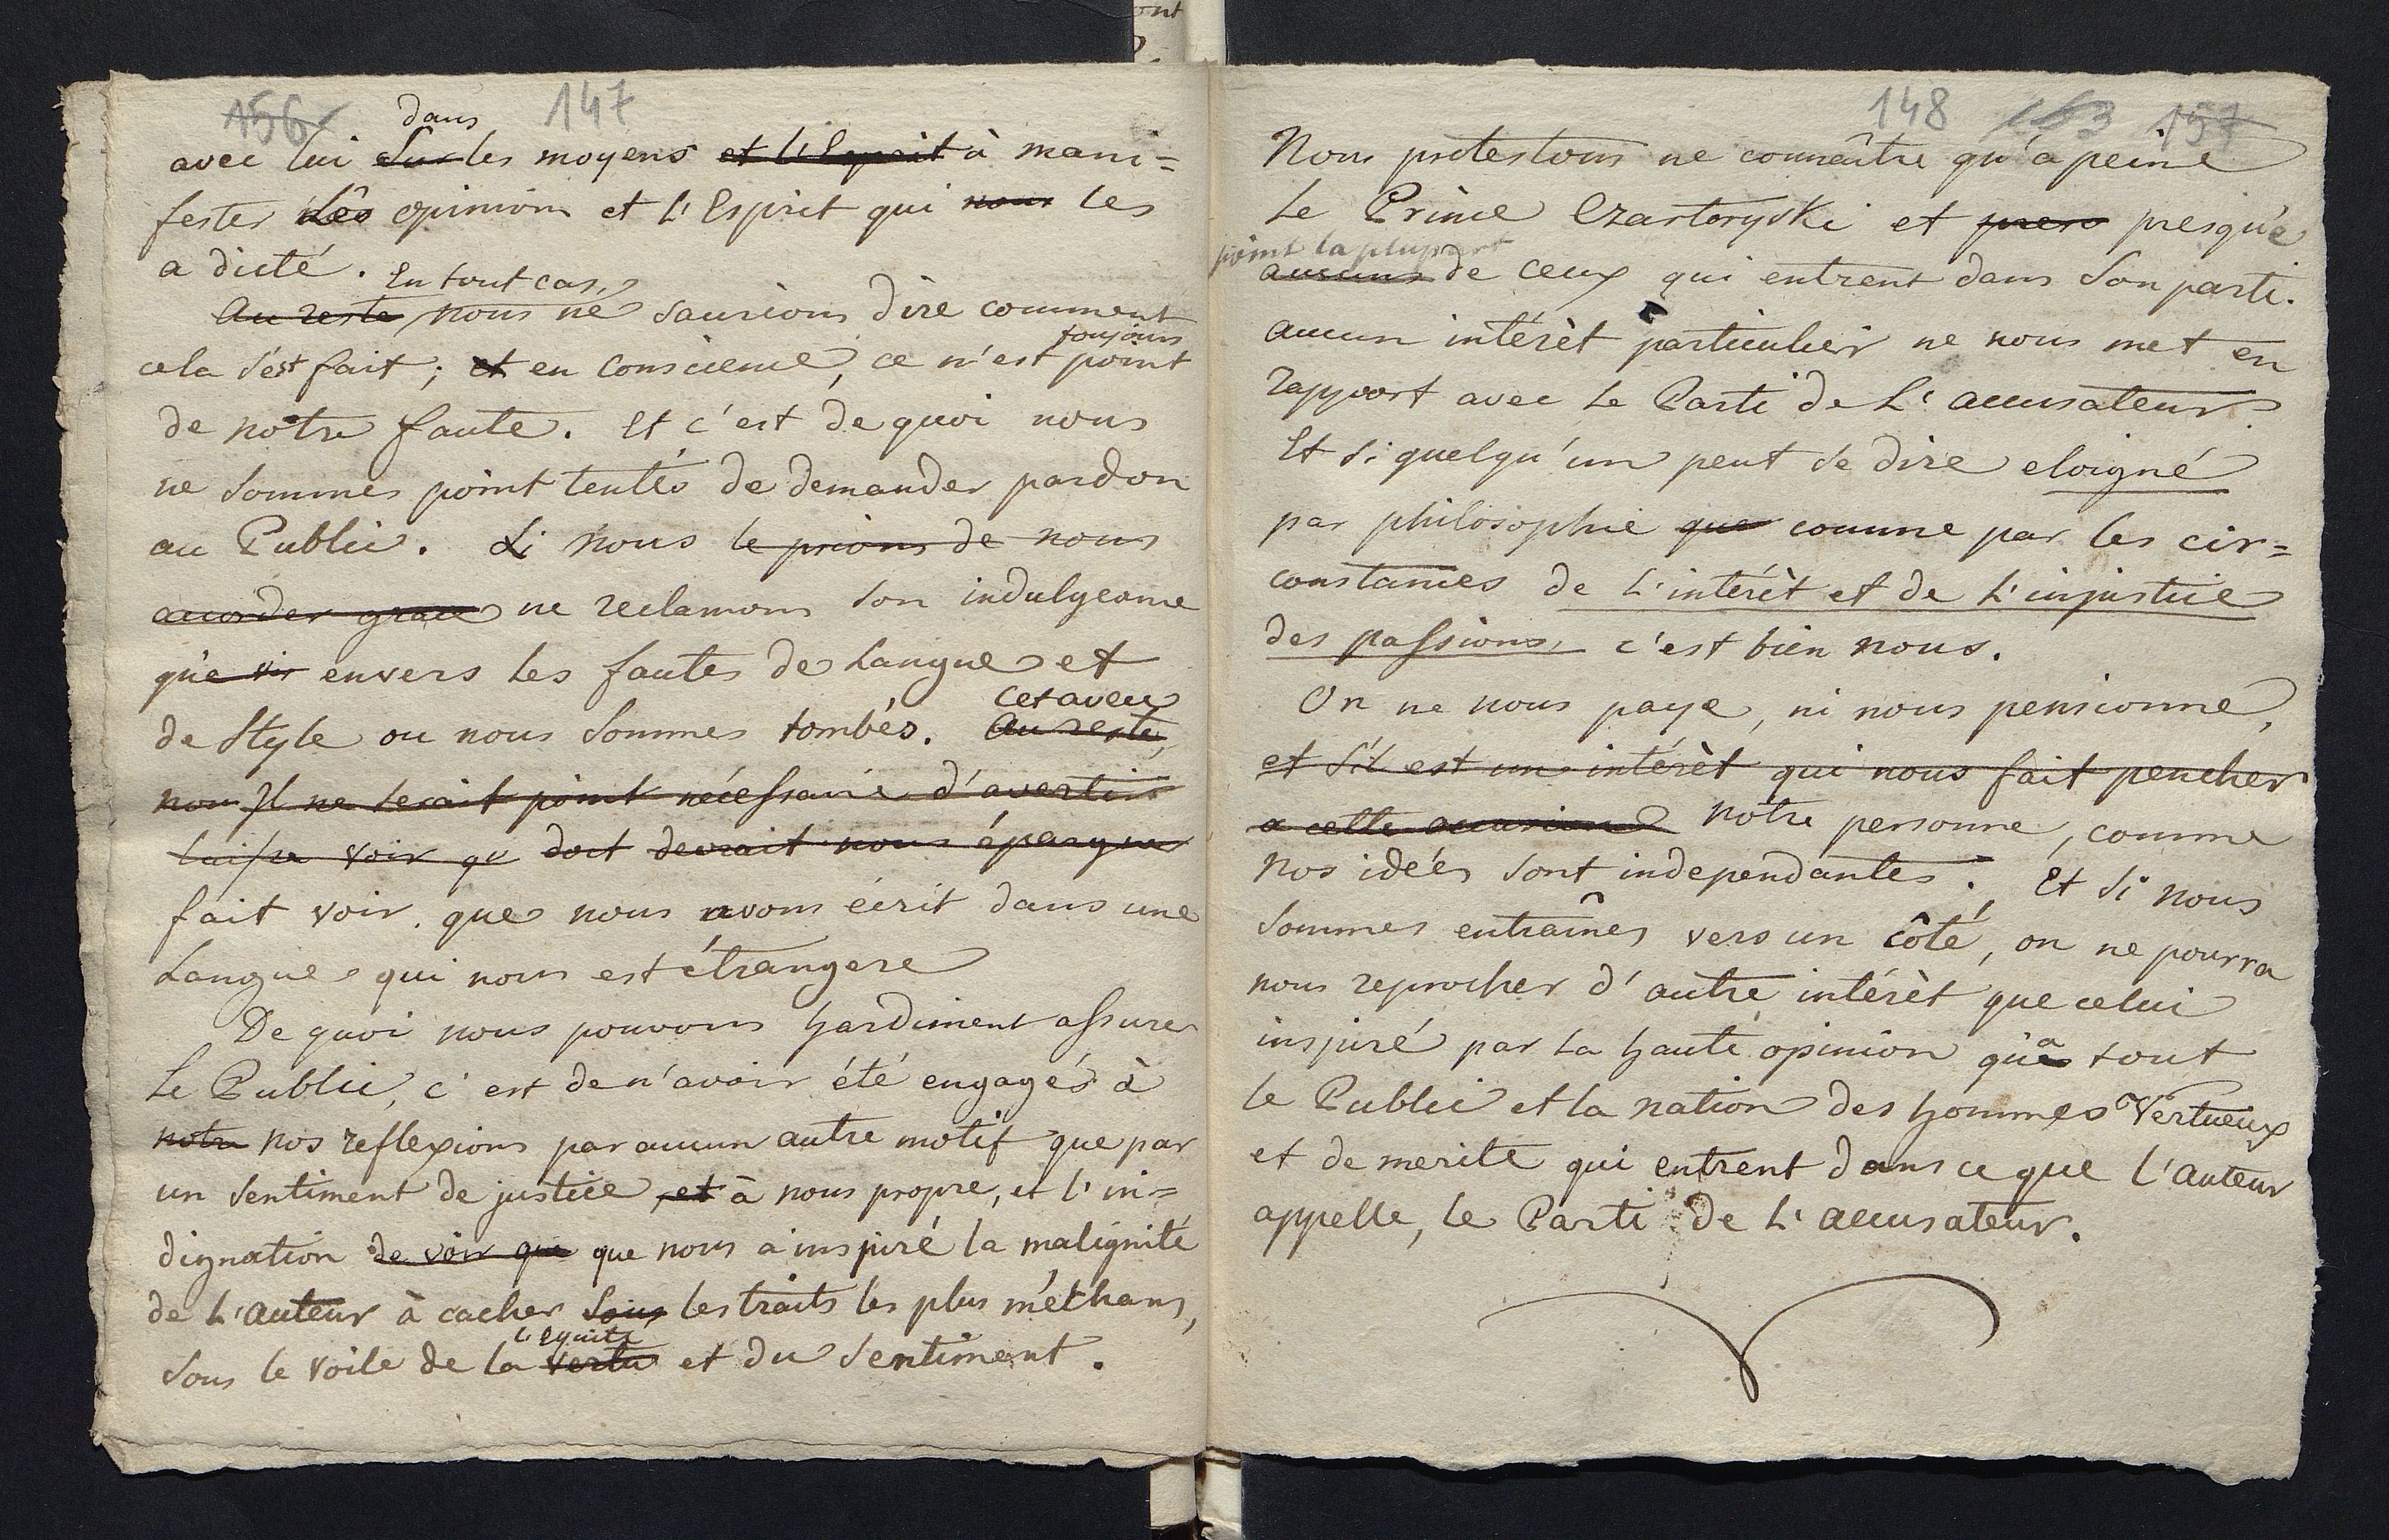 156 147
dans
avec lui sur les moyens et l'Esprit à mani=
fester les opinions et l'Esprit qui nous les
a dicté.
En tout cas,
Au reste nous ne saurions dire comment
toujours
cela s'est fait; et en conscience, ce n'est point
de nôtre faute. Et c'est de quoi nous
ne sommes point tentés de demander pardon
au Public. Si nous le prions de nous
accorder grace ne reclamons son indulgeance
que envers les fautes de Langue et
cet aveu
de Style ou nous sommes tombés. Au reste,
non Il ne serait point nécessaire d'avertir
laisse voir qu doit devrait nous épargner
fait voir, que nous avons écrit dans une
Langue qui nous est étrangere
De quoi nous pouvons hardiment assurer
Le Public, c'est de n'avoir été engagés à
notre nos reflexions par aucun autre motif que par
un sentiment de justice, et à nous propre, et l'in=
dignation de voir que que nous a inspiré la malignité
de L'auteur à cacher sous les traits les plus méchans,
l'equité
sous le voile de la vertu et du sentiment.
ont
148 163 157
Nous protestons ne connaître qu'a peine
Le Prince Czartoryski et pres presqu'e
point la plupart
aucuns de ceux qui entrent dans son parti.
aucun intérèt particulier ne nous met en
rapport avec le Parti de L'accusateur.
Et si quelqu'un peut se dire eloigné
par philosophie que comme par les cir=
constances de L'intérèt et de L'injustice
des passions, c'est bien nous.
On ne nous paye, ni nous pensionne,
et s'il est un intérèt qui nous fait pencher
a cette occasion notre personne, comme
nos idées sont independantes. Et si nous
sommes entraînés vers un côté, on ne pourra
nous reprocher d'autre intérèt que celui
inspiré par la haute opinion qu'a tout
le Public et la nation des hommes Vertueux
et de merite qui entrent dans ce que l'auteur
appelle, le Parti de L'accusateur.